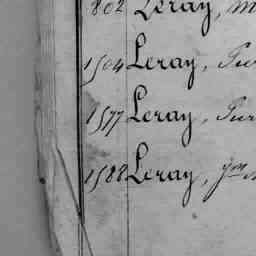 1802 Leray, M
1504 Leray, Pur
1577 Leray, Pur
1588 Leray, Jm